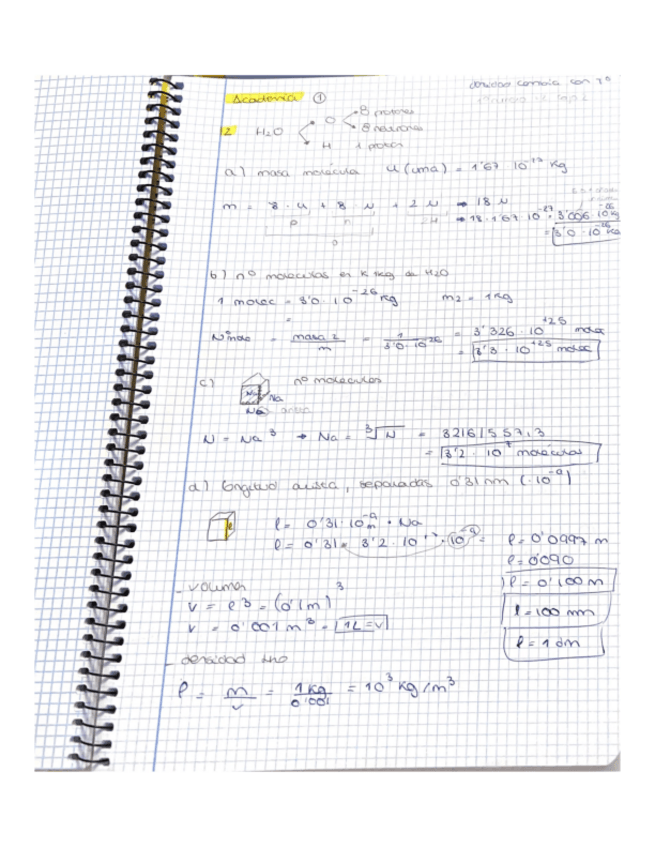 densidad cambia con Tº
Academia ①
2 H2O O 8 protones
8 neutrones
H 1 protón
a) masa molécula u (uma) = 1'67 10⁻²⁷ kg
m = 8·u + 8·u + 2u → 18u
p n 2H
→ 18·1'67·10⁻²⁷ = 3'006·10⁻²⁶ kg
= 3'0·10⁻²⁶ kg
b) nº moléculas en 1kg de H2O
1 molec = 3'0·10⁻²⁶ kg m2 = 1kg
=
masa 2 / m = 1 / 3'0·10⁻²⁶ = 3'326·10⁺²⁵ molec
= 3'3·10⁺²⁵ molec
c) Na nº moléculas
Na
Na arista
N = Na³ → Na = ³√N = 321615573
= 3'2·10 moléculas
d) longitud arista, separadas 0'31 nm (·10⁻⁹)
l l = 0'31·10⁻⁹ m · Na
l = 0'31· 3'2·10 ·10⁻⁹ = l = 0'0997 m
l = 0'090
l = 0'100 m
_ volumen
V = l³ = (0'1m)³ l = 100 mm
V = 0'001 m³ = 1L = V
l = 1 dm
_ densidad
ρ = m / v = 1kg / 0'001 = 10³ kg/m³